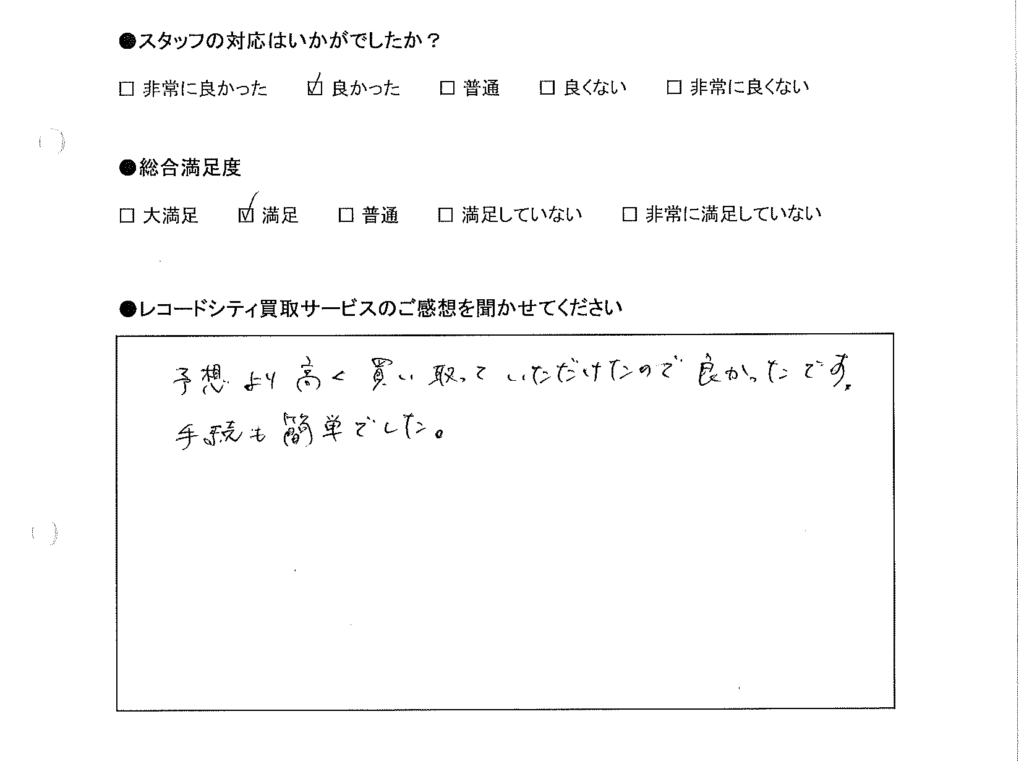 ●スタッフの対応はいかがでしたか？
□ 非常に良かった ☑ 良かった □ 普通 □ 良くない □ 非常に良くない
●総合満足度
□ 大満足 ☑ 満足 □ 普通 □ 満足していない □ 非常に満足していない
●レコードシティ買取サービスのご感想を聞かせてください
予想より高く買い取っていただけたので良かったです。
手続も簡単でした。